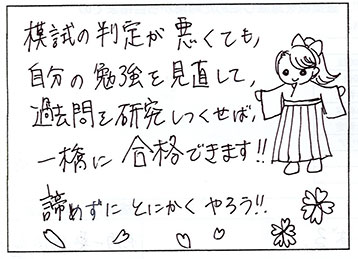 模試の判定が悪くても,
自分の勉強を見直して,
過去問を研究しつくせば,
一橋に合格できます!!
諦めずにとにかくやろう!!